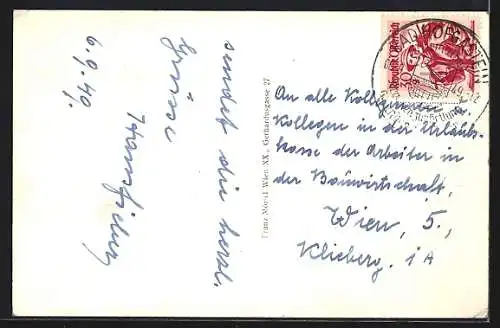 6.9.49.
sendet die herzl.
Grüsse
Franz Mörtl Wien XX., Gerhardusgasse 27
Republik Österreich
BAD HOFGASTEIN
An alle Kolleginnen u.
Kollegen in der Urlaubs-
kasse der Arbeiter in
der Bauwirtschaft,
Wien, 5,
Klieberg. 1A